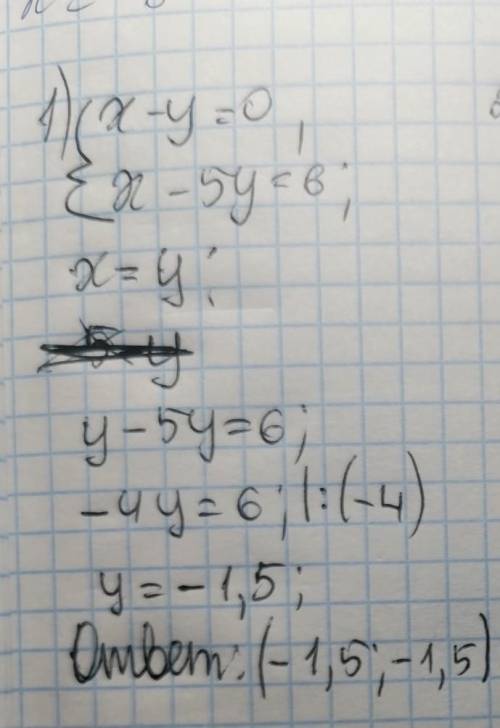 1) { x - y = 0,
{ x - 5y = 6;
x = y;
y - 5y = 6;
-4y = 6; |:(-4)
y = -1,5;
Ответ: (-1,5; -1,5)